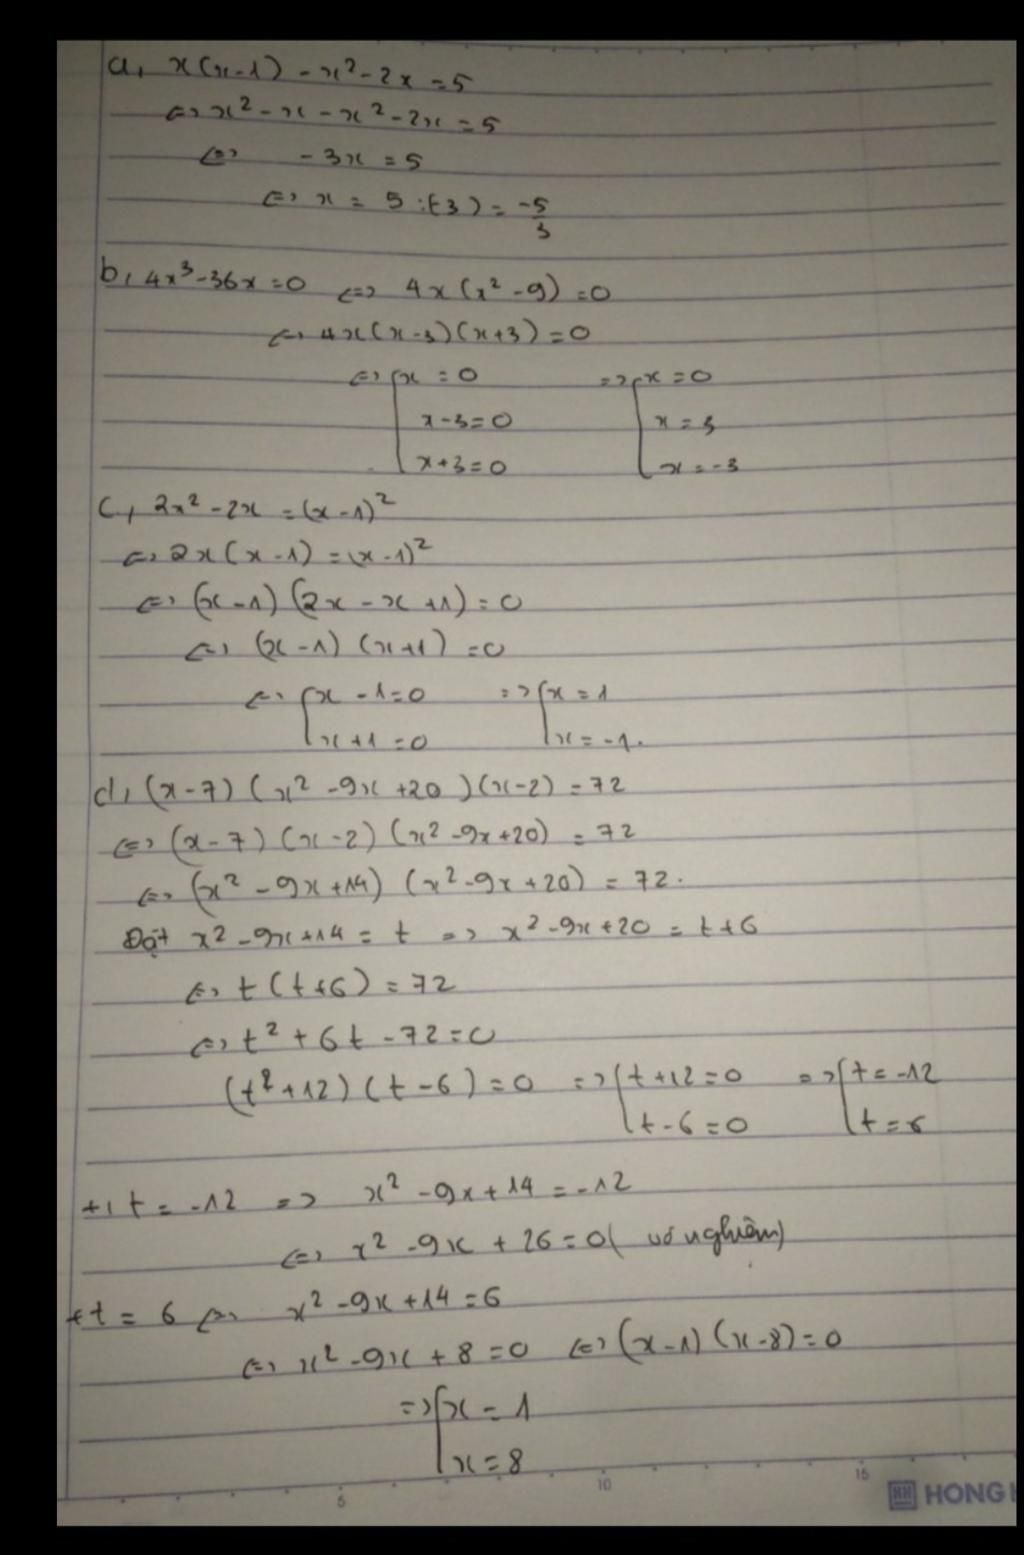 a, x(x-1) - x² - 2x = 5
⇔ x² - x - x² - 2x = 5
⇔ - 3x = 5
⇔ x = 5 : (-3) = -5/3
b, 4x³ - 36x = 0 ⇔ 4x(x² - 9) = 0
⇔ 4x(x-3)(x+3) = 0
⇔ [x = 0 => [x = 0
x - 3 = 0 x = 3
x + 3 = 0 x = -3
c, 2x² - 2x = (x - 1)²
⇔ 2x(x - 1) = (x - 1)²
⇔ (x - 1)(2x - x + 1) = 0
⇔ (x - 1)(x + 1) = 0
⇔ [x - 1 = 0 => [x = 1
x + 1 = 0 x = -1.
d, (x - 7)(x² - 9x + 20)(x - 2) = 72
⇔ (x - 7)(x - 2)(x² - 9x + 20) = 72
⇔ (x² - 9x + 14)(x² - 9x + 20) = 72.
Đặt x² - 9x + 14 = t => x² - 9x + 20 = t + 6
⇔ t(t + 6) = 72
⇔ t² + 6t - 72 = 0
(t + 12)(t - 6) = 0 => [t + 12 = 0 => [t = -12
t - 6 = 0 t = 6
+, t = -12 => x² - 9x + 14 = -12
⇔ x² - 9x + 26 = 0 (vô nghiệm)
+ t = 6 ⇔ x² - 9x + 14 = 6
⇔ x² - 9x + 8 = 0 ⇔ (x - 1)(x - 8) = 0
=> [x = 1
x = 8
5 10 15
HONG